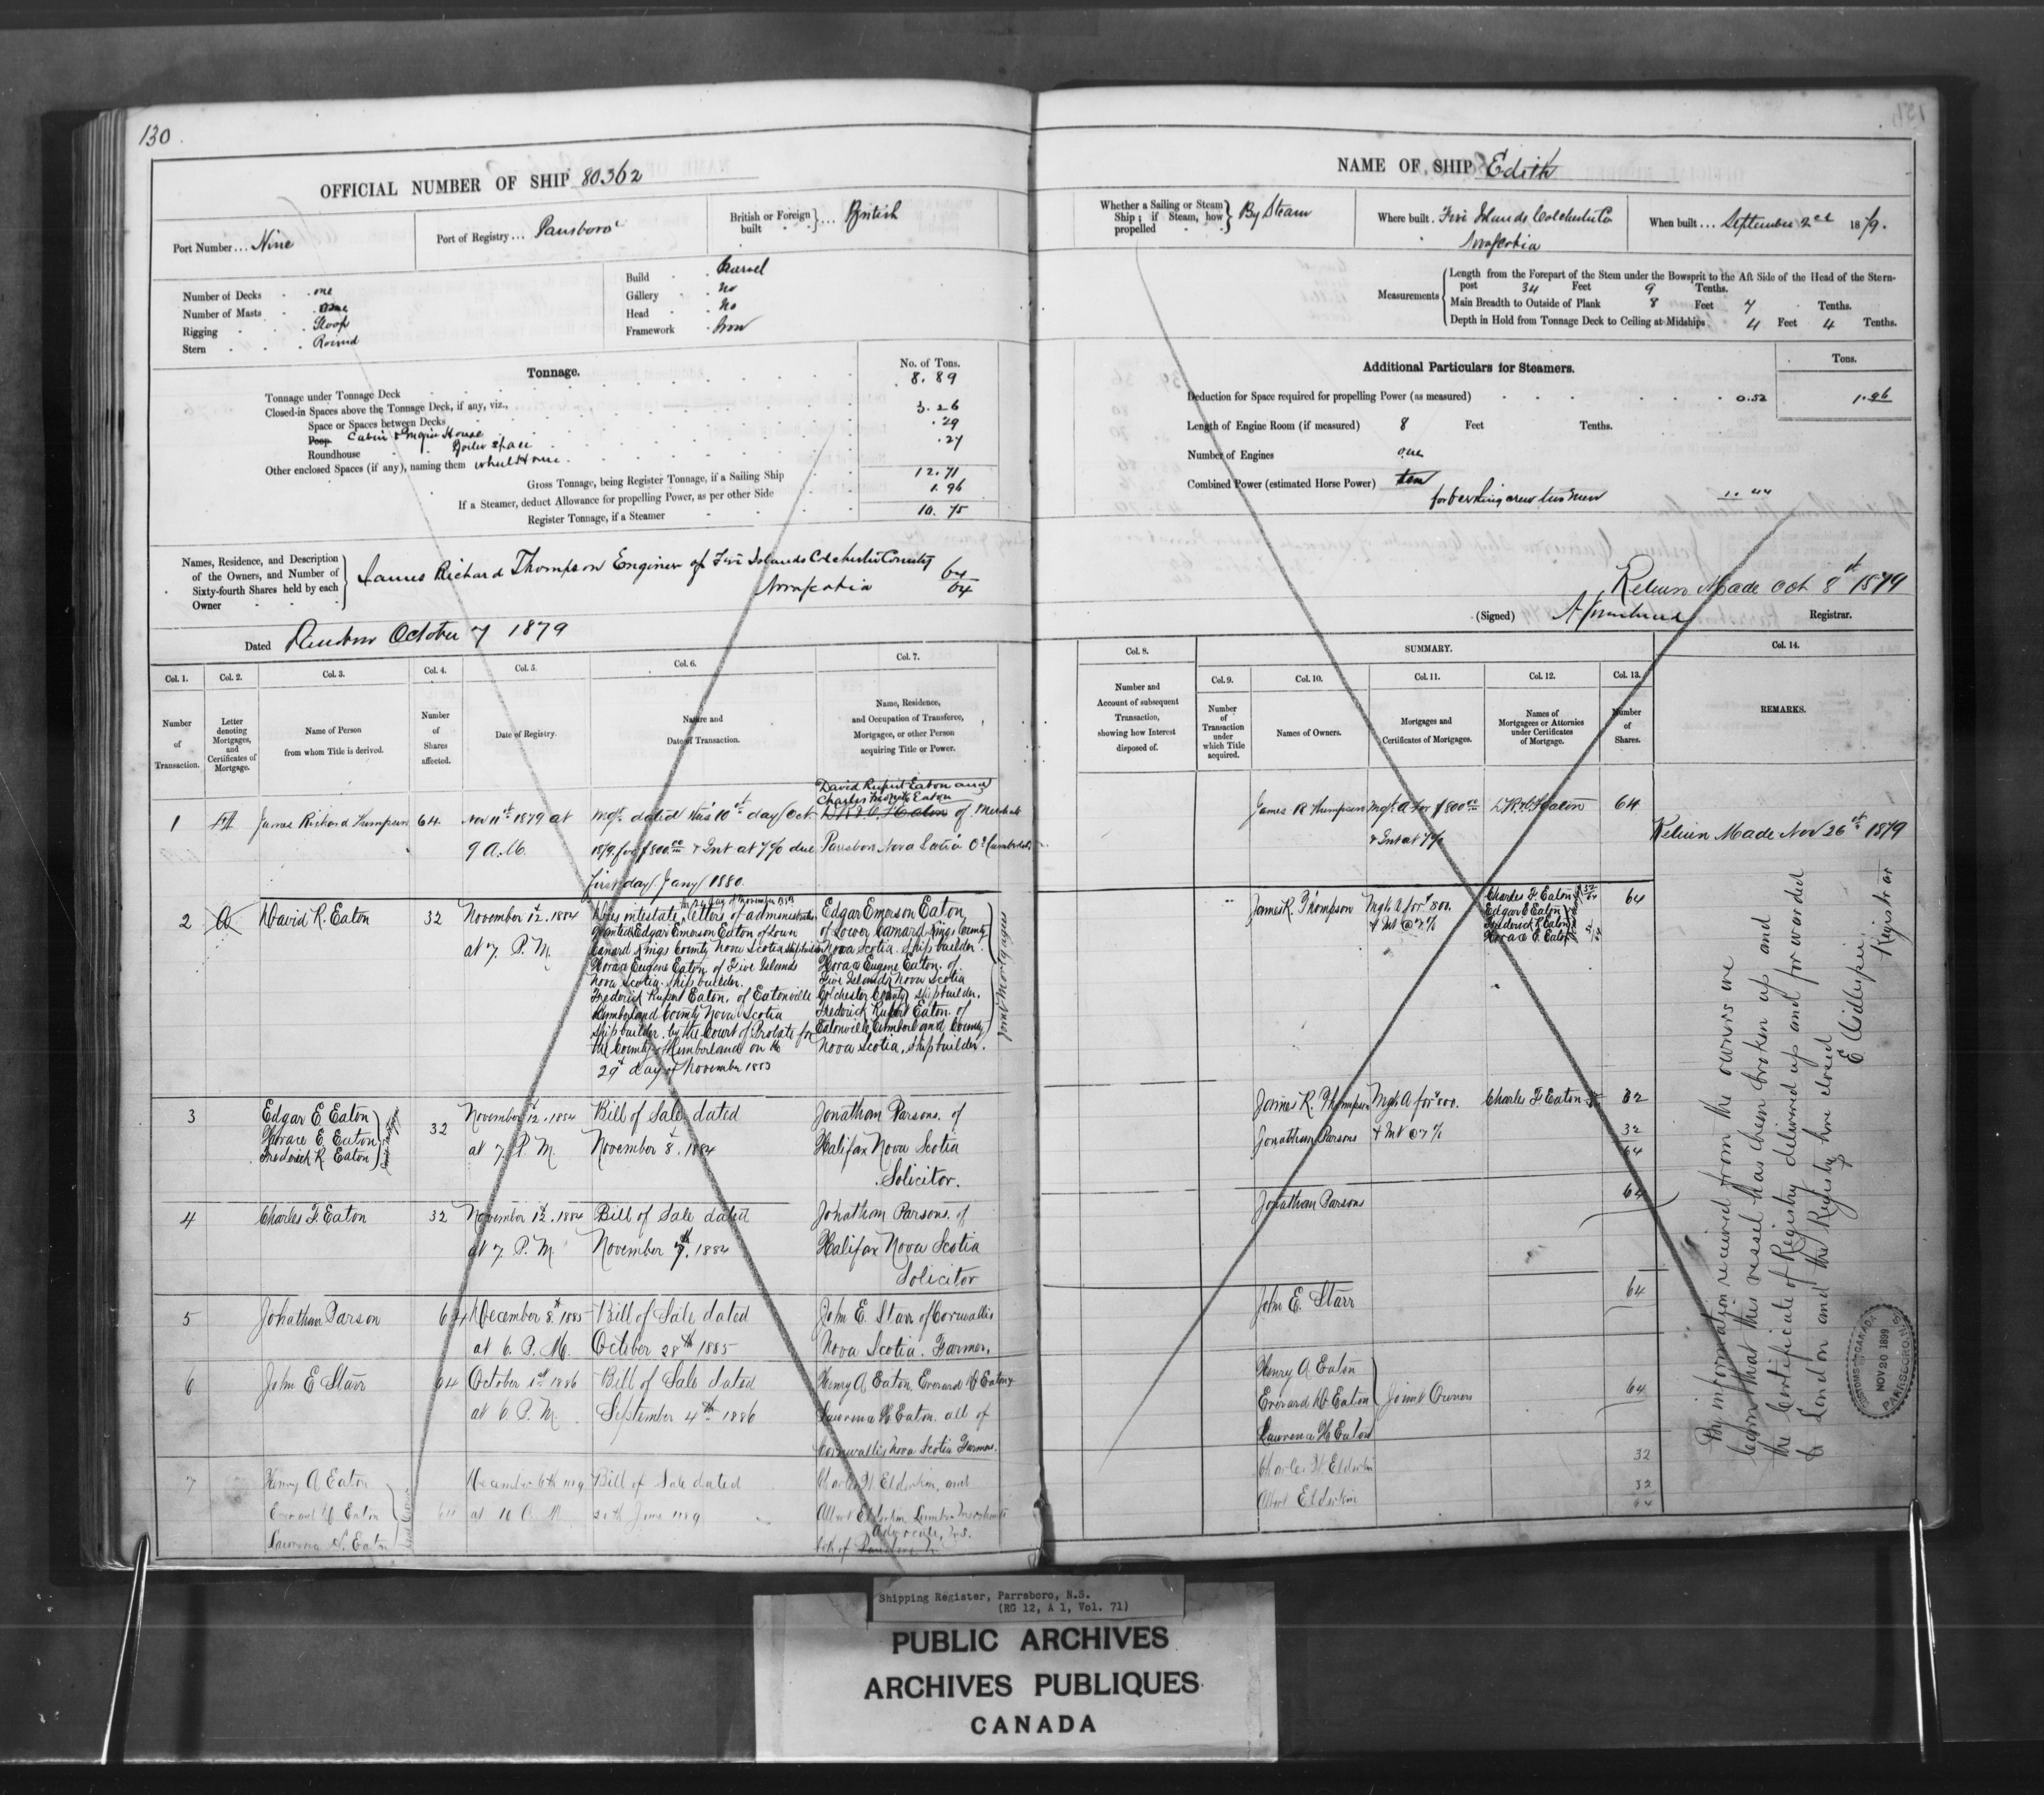 130
OFFICIAL NUMBER OF SHIP 80362
Port Number ... Nine
Port of Registry ... Parrsboro
British or Foreign built } ... British
Number of Decks one
Number of Masts One
Rigging Sloop
Stern Round
Build Carvel
Gallery No
Head No
Framework
Tonnage.
No. of Tons.
Tonnage under Tonnage Deck 8.89
Closed-in Spaces above the Tonnage Deck, if any, viz.,
Space or Spaces between Decks 3.26
Poop Cabin & Engine House .29
Roundhouse Boiler Space .27
Other enclosed Spaces (if any), naming them wheel House
Gross Tonnage, being Register Tonnage, if a Sailing Ship 12.71
If a Steamer, deduct Allowance for propelling Power, as per other Side 1.96
Register Tonnage, if a Steamer 10.75
Names, Residence, and Description of the Owners, and Number of Sixty-fourth Shares held by each Owner
James Richard Thompson Engineer of Five Islands Colchester County
Nova Scotia 64/64
Dated Parrsboro October 7 1879
Col. 1. Col. 2. Col. 3. Col. 4. Col. 5. Col. 6. Col. 7.
Number of Transaction.
Letter denoting Mortgages, and Certificates of Mortgage.
Name of Person from whom Title is derived.
Number of Shares affected.
Date of Registry.
Nature and Date of Transaction.
Name, Residence, and Occupation of Transferee, Mortgagee, or other Person acquiring Title or Power.
David Rupert Eaton and
Charles Eaton
1 A James Richard Thompson 64 Nov 11th 1879 at Mgt. dated this 10th day Oct D R & C F Eaton of
9 A.M. 1879 for $800.00 & Int at 7% due Parrsboro Nova Scotia
first day Jany 1880
2 A David R. Eaton 32 November 12. 1884
at 7. P. M.
Dies intestate letters of administration
granted Edgar Emerson Eaton of Lower
Canard Kings County Nova Scotia shipbuilder
Horace Eugene Eaton of Five Islands
Nova Scotia, shipbuilder.
Frederick Rupert Eaton. of Eatonville
Cumberland County Nova Scotia
shipbuilder. by the Court of Probate for
the County of Cumberland on the
29th day of November 1883
Edgar Emerson Eaton
of Lower Canard Kings County
Nova Scotia. shipbuilder.
Horace Eugene Eaton. of
Five Islands Nova Scotia
Colchester County shipbuilder.
Frederick Rupert Eaton. of
Eatonville Cumberland County
Nova Scotia, shipbuilder.
Joint Mortgagees
3 Edgar E Eaton
Horace E. Eaton
Frederick R. Eaton
32 November 12. 1884 Bill of Sale dated Jonathan Parsons. of
at 7. P. M. November 8. 1884 Halifax Nova Scotia
Solicitor.
4 Charles F. Eaton 32 November 12. 1884 Bill of Sale dated Jonathan Parsons. of
at 7. P. M November 7th. 1884 Halifax Nova Scotia
Solicitor
5 Jonathan Parson 64 December 8th. 1885 Bill of Sale dated John E. Starr of Cornwallis
at 6. P. M. October 28th 1885 Nova Scotia. Farmer.
6 John E Starr 64 October 1st 1886 Bill of Sale dated Henry A Eaton, Everard D Eaton &
at 6 P. M. September 4th 1886 Lawrence H Eaton. all of
Cornwallis Nova Scotia Farmers.
7 Henry A Eaton
Everard D Eaton
Lawrence H. Eaton
64 December 6th 1889 Bill of Sale dated Charles W. Elderkin, and
at 10 A. M. June 1889 Albert Elderkin Lumber Merchants
both of Parrsboro Advocate, N.S.
NAME OF SHIP Edith
Whether a Sailing or Steam Ship; if Steam, how propelled } By Steam
Where built. Five Islands Colchester Co
Nova Scotia
When built ... September 2nd 1879.
Measurements
Length from the Forepart of the Stem under the Bowsprit to the Aft Side of the Head of the Stern-
post 34 Feet 9 Tenths.
Main Breadth to Outside of Plank 8 Feet 7 Tenths.
Depth in Hold from Tonnage Deck to Ceiling at Midships 4 Feet 4 Tenths.
Additional Particulars for Steamers.
Tons.
Deduction for Space required for propelling Power (as measured) 0.52 1.96
Length of Engine Room (if measured) 8 Feet Tenths.
Number of Engines one
Combined Power (estimated Horse Power) ten
for berthing crew two men 1.44
Return Made Oct 8th 1879
(Signed) Registrar.
Col. 8. SUMMARY. Col. 14.
Col. 9. Col. 10. Col. 11. Col. 12. Col. 13.
Number and Account of subsequent Transaction, showing how Interest disposed of.
Number of Transaction under which Title acquired.
Names of Owners.
Mortgages and Certificates of Mortgages.
Names of Mortgagees or Attornies under Certificates of Mortgage.
Number of Shares.
REMARKS.
James R Thompson Mgt. A for $800.00 D R & C F Eaton 64
& Int at 7%
Return Made Nov 26th 1879
James R. Thompson Mgt. A for $800. 64
& Int @ 7%
Charles F. Eaton 32/64
Edgar E Eaton
Frederick R Eaton
Horace E. Eaton
James R. Thompson Mgt. A for $800. Charles F Eaton 32
Jonathan Parsons & Int @ 7% 32
64
Jonathan Parsons 64
John E. Starr 64
Henry A Eaton
Everard D Eaton } Joint Owners 64
Lawrence H Eaton
Charles W. Elderkin 32
Albert Elderkin 32
64
By information received from the owners we
learn that this vessel has been broken up and
the Certificate of Registry delivered up and forwarded
to London and the Registry here closed
E Gillespie
Registrar
CUSTOMS CANADA
NOV 20 1899
PARRSBORO, N.S.
Shipping Register, Parrsboro, N.S.
(RG 12, A 1, Vol. 71)
PUBLIC ARCHIVES
ARCHIVES PUBLIQUES
CANADA